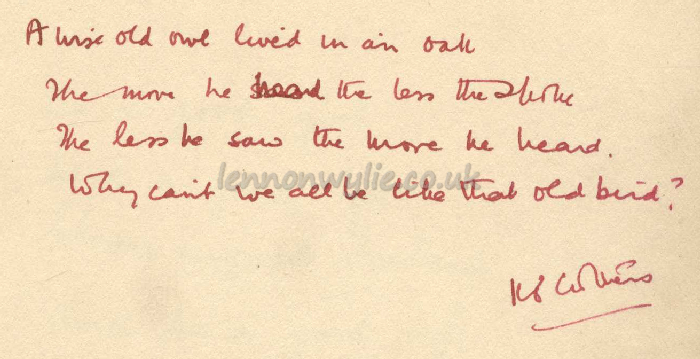 A wise old owl lived in an oak
The more he heard the less he spoke
The less he saw the more he heard.
Why can't we all be like that old bird?
lennonwylie.co.uk